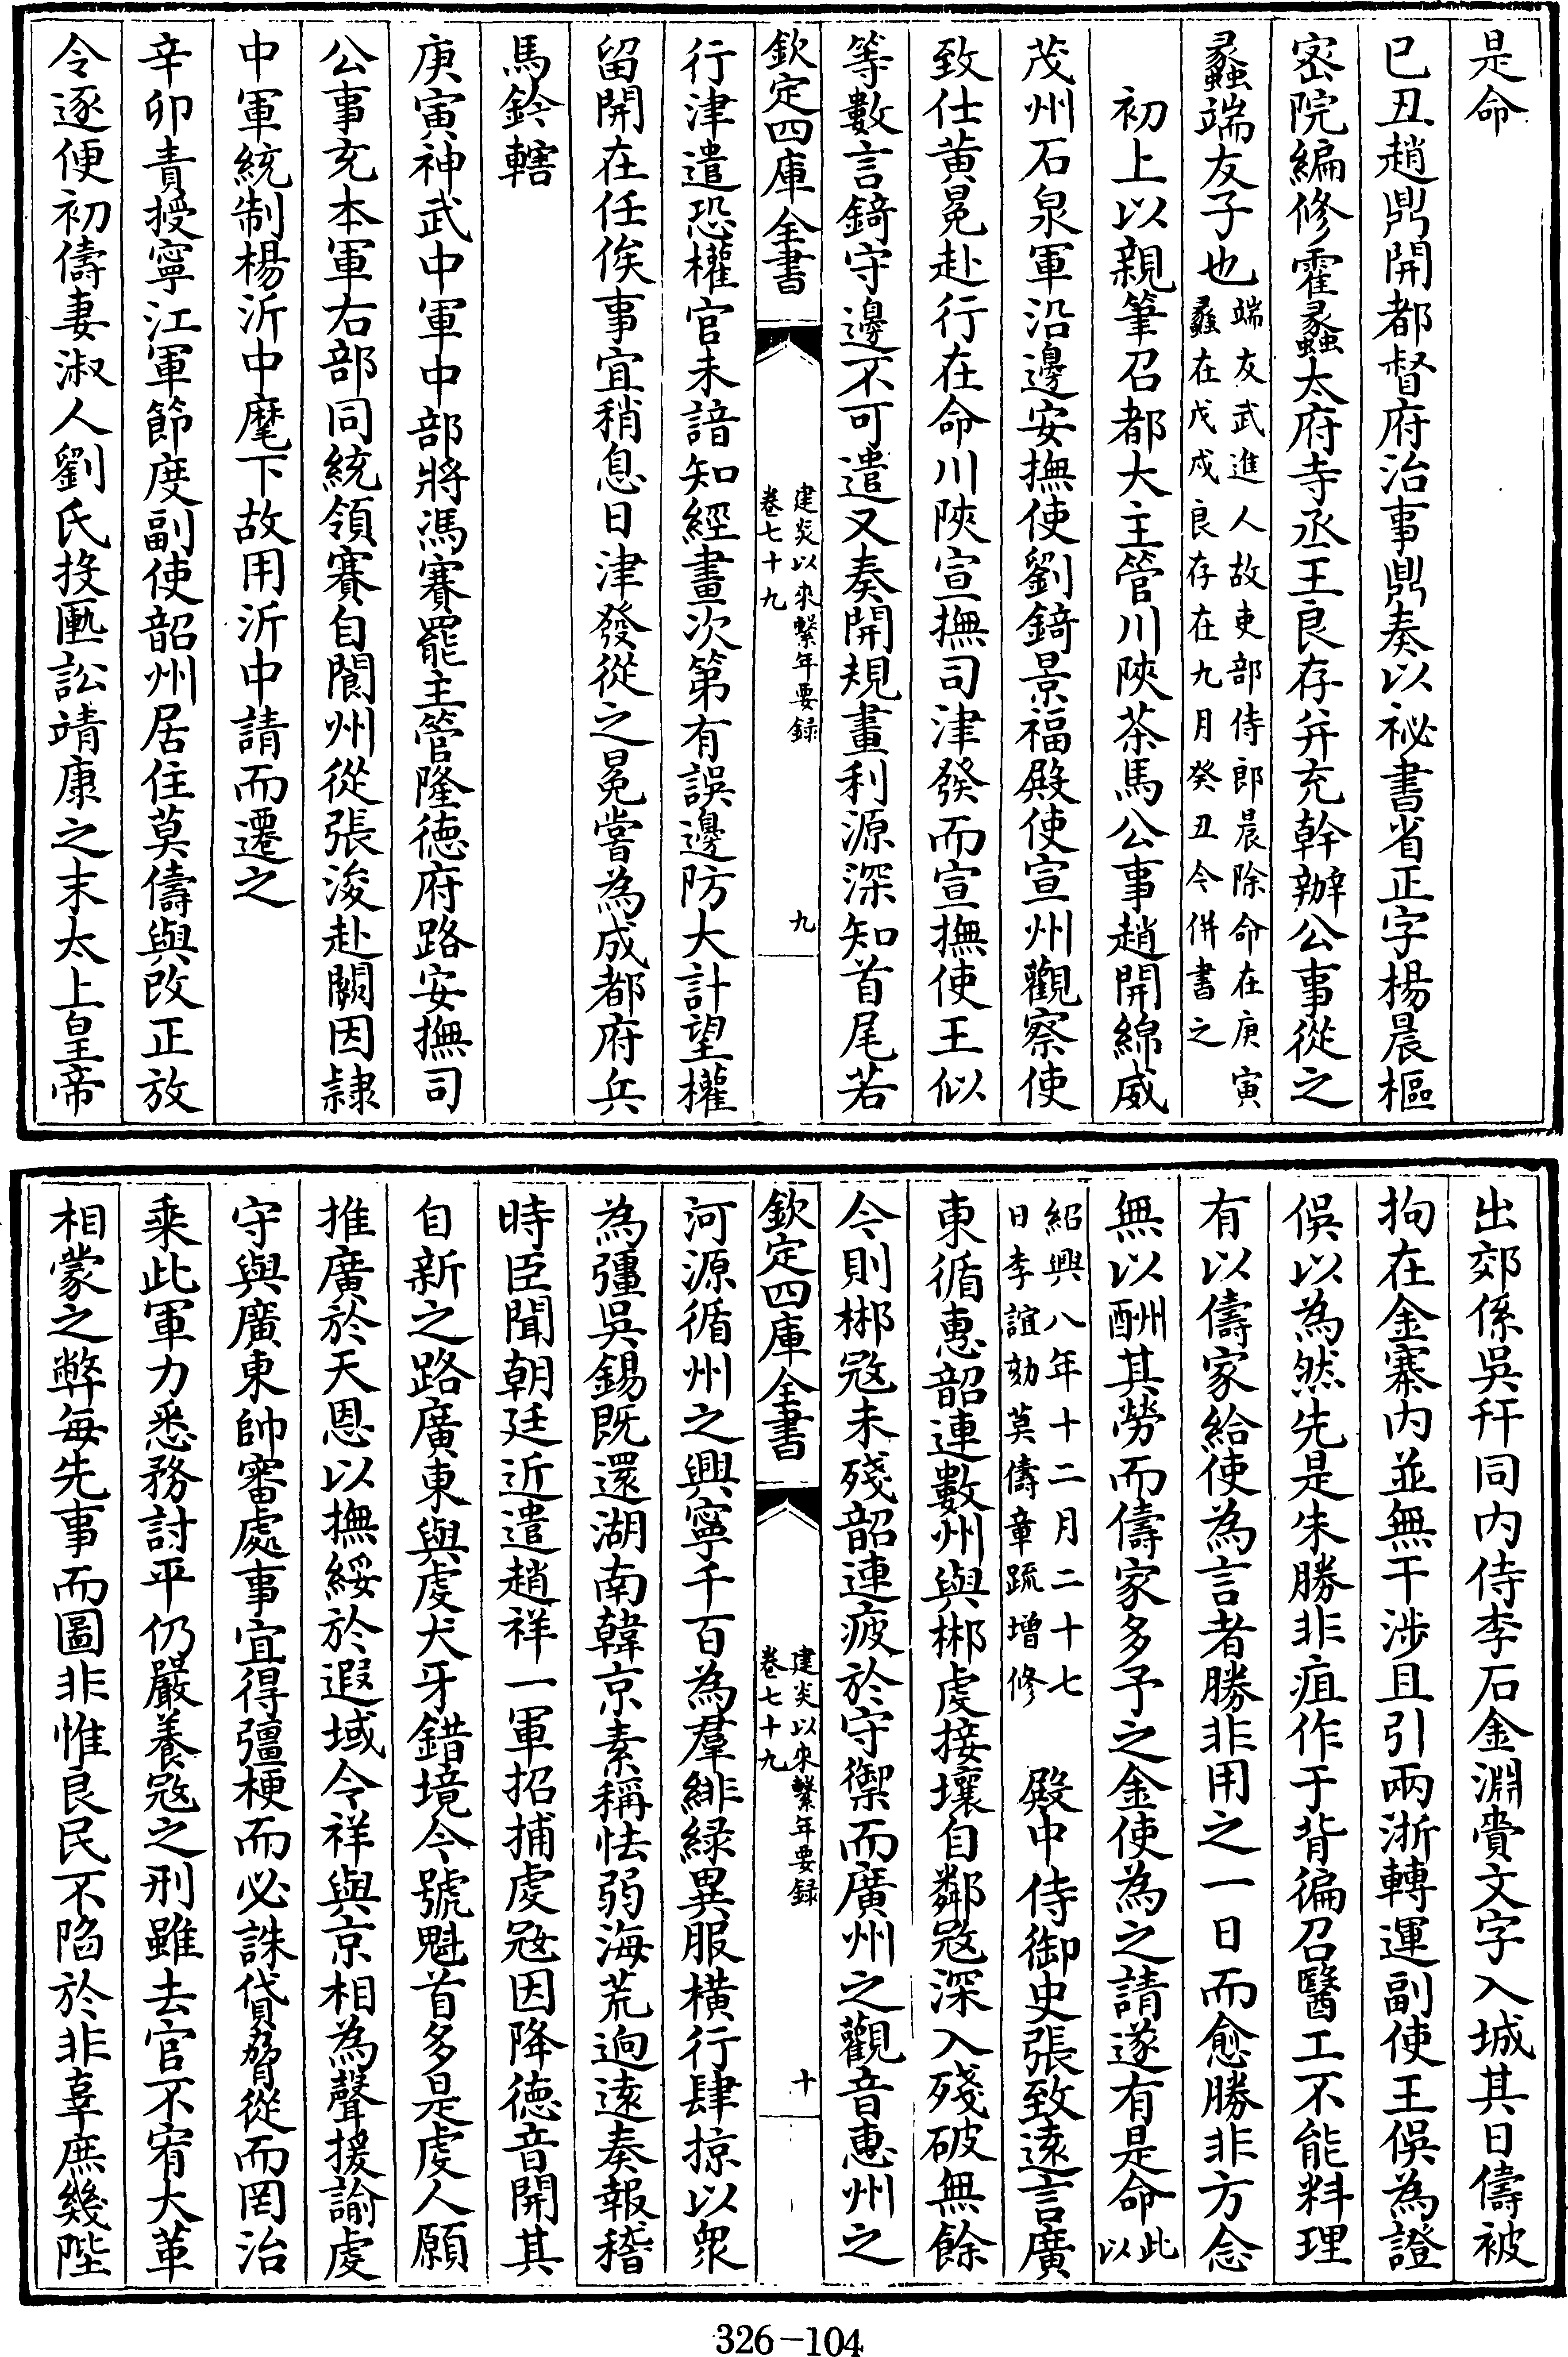 是命
已丑趙鼎開都督府治事鼎奏以祕書省正字楊晨樞
密院編修霍蠡太府寺丞王良存并充幹辦公事從之
蠡端友子也端友武進人故吏部侍郎晨除命在庚寅
蠡在戊戌良存在九月癸丑今併書之
初上以親筆召都大主管川陜茶馬公事趙開綿威
茂州石泉軍沿邊安撫使劉錡景福殿使宣州觀察使
致仕黄冕赴行在命川陜宣撫司津發而宣撫使王似
等數言錡守邊不可遣又奏開規畫利源深知首尾若
欽定四庫全書
建炎以來繫年要録
卷七十九
九
行津遣恐權官未諳知經畫次第有誤邊防大計望權
留開在任俟事宜稍息日津發從之冕嘗為成都府兵
馬鈐轄
庚寅神武中軍中部將馮賽罷主管隆德府路安撫司
公事充本軍右部同統領賽自閬州從張浚赴闕因隷
中軍統制楊沂中麾下故用沂中請而遷之
辛卯責授寧江軍節度副使韶州居住莫儔與改正放
令逐便初儔妻淑人劉氏投匭訟靖康之末太上皇帝
出郊係吳幵同内侍李石金淵賫文字入城其日儔被
拘在金寨内並無干涉且引兩浙轉運副使王俁為證
俁以為然先是朱勝非疽作于背徧召醫工不能料理
有以儔家給使為言者勝非用之一日而愈勝非方念
無以酬其勞而儔家多予之金使為之請遂有是命此以
紹興八年十二月二十七
日李誼劾莫儔章疏增修
殿中侍御史張致遠言廣
東循惠韶連數州與郴虔接壤自鄰宼深入殘破無餘
今則郴宼未殘韶連疲於守禦而廣州之觀音惠州之
欽定四庫全書
建炎以來繫年要録
卷七十九
十
河源循州之興寧千百為羣緋緑異服橫行肆掠以衆
為彊吳錫既還湖南韓京素稱怯弱海荒逈逺奏報稽
時臣聞朝廷近遣趙祥一軍招捕虔宼因降德音開其
自新之路廣東與虔犬牙錯境今號魁首多是虔人願
推廣於天恩以撫綏於遐域令祥與京相為聲援諭虔
守與廣東帥審處事宜得彊梗而必誅貸脅從而罔治
乘此軍力悉務討平仍嚴養宼之刑雖去官不宥大革
相蒙之弊每先事而圖非惟良民不陷於非辜庶幾陛
326-104